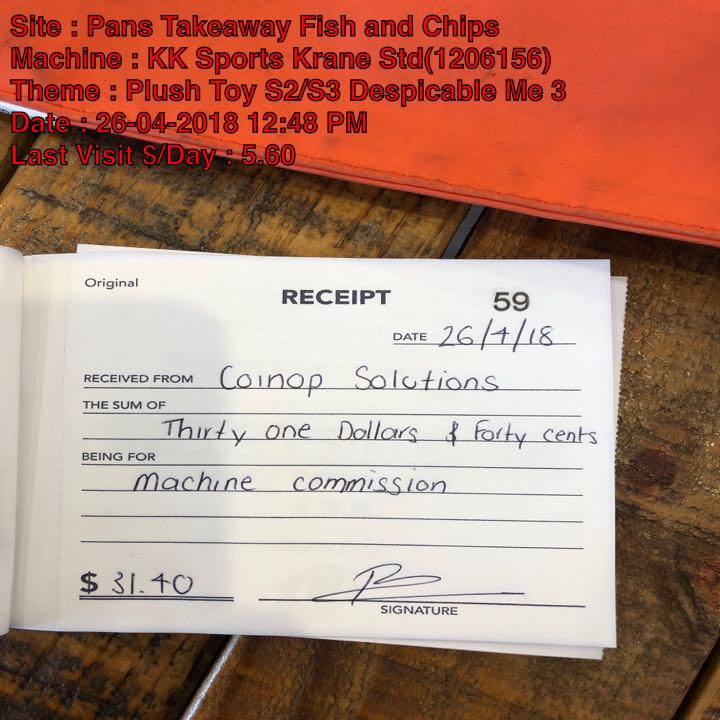 Site : Pans Takeaway Fish and Chips
Machine : KK Sports Krane Std(1206156)
Theme : Plush Toy S2/S3 Despicable Me 3
Date : 26-04-2018 12:48 PM
Last Visit $/Day : 5.60
Original
RECEIPT 59
DATE 26/4/18
RECEIVED FROM Coinop Solutions
THE SUM OF
Thirty one Dollars & Forty cents
BEING FOR
Machine commission
$ 31.40
SIGNATURE